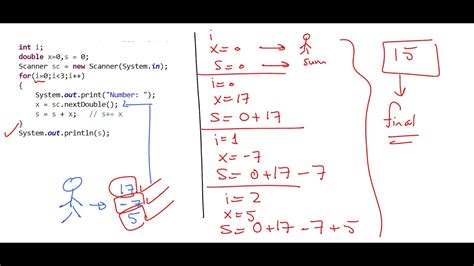 int i;
double x=0,s = 0;
Scanner sc = new Scanner(System.in);
for(i=0;i<3;i++)
{
System.out.print("Number: ");
x = sc.nextDouble();
s = s + x;   // s+= x
}
System.out.println(s);
17
-7
5
i
x=0
s=0
sum
i=0
x=17
s=0+17
i=1
x=-7
S=0+17-7
i=2
x=5
S=0+17-7+5
15
final